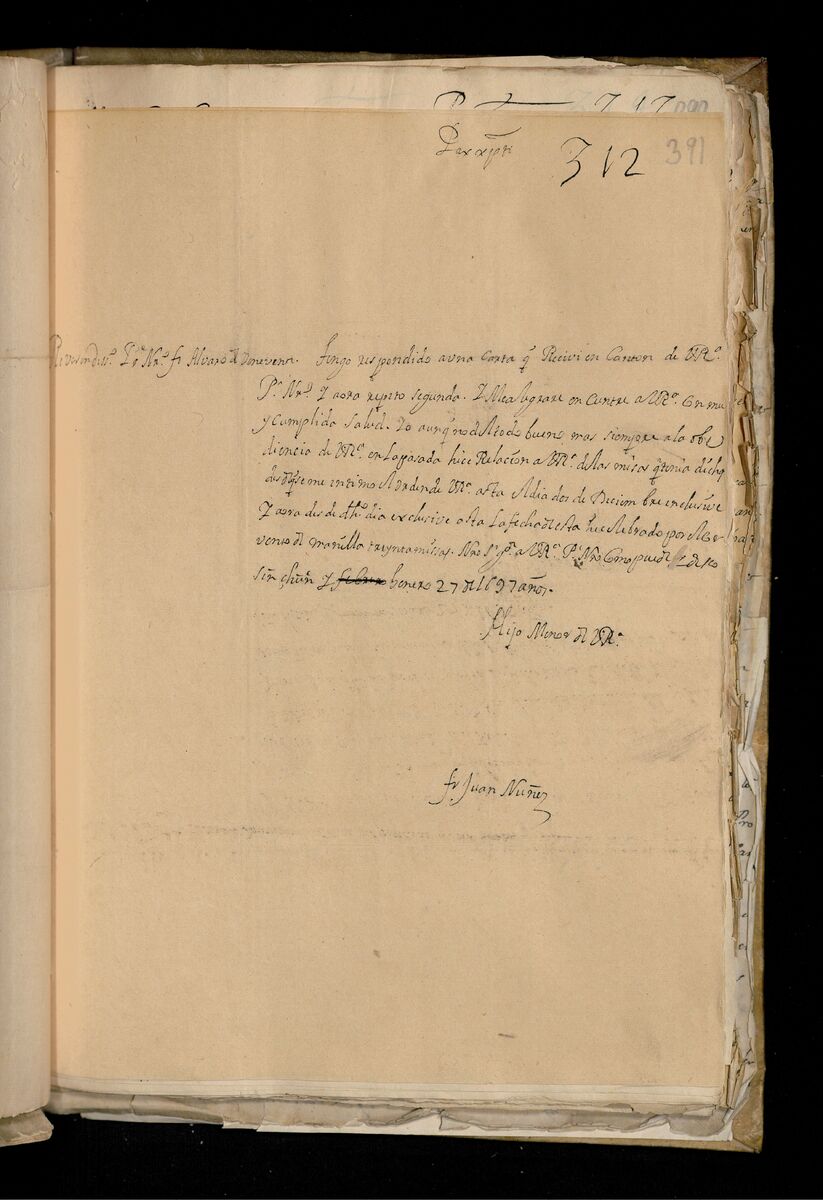 Pax xpti
312
391
Reverendiss.º P.e Nr.º fr Alvaro de Venevente. Tengo respondido a una carta q̃ Recivi en Canton de VR.ª
P.e Nr.º Y aora repito segunda. Y Me alegrare encuentre a VR.ª Con mu
y cumplida salud. Yo aunq̃ no de todo bueno, mas siempre a la obe
diencia de VR.ª en La pasada hice Relacion a VR.ª de las misas q̃ tenia dichas
desde q̃ se me intimo el orden de VR.ª asta el dia dos de Deciembre enclusive
Y aora desde dho dia exclusive asta La fecha de esta he celebrado por el con
vento de manilla treynta misas. Nro S.r g.e a VR.ª P.e Nro Como puede
sin ghũi Y febrero henero 27 de 1697 años.
Hijo Menor de VR.ª
fr Juan Nuñez